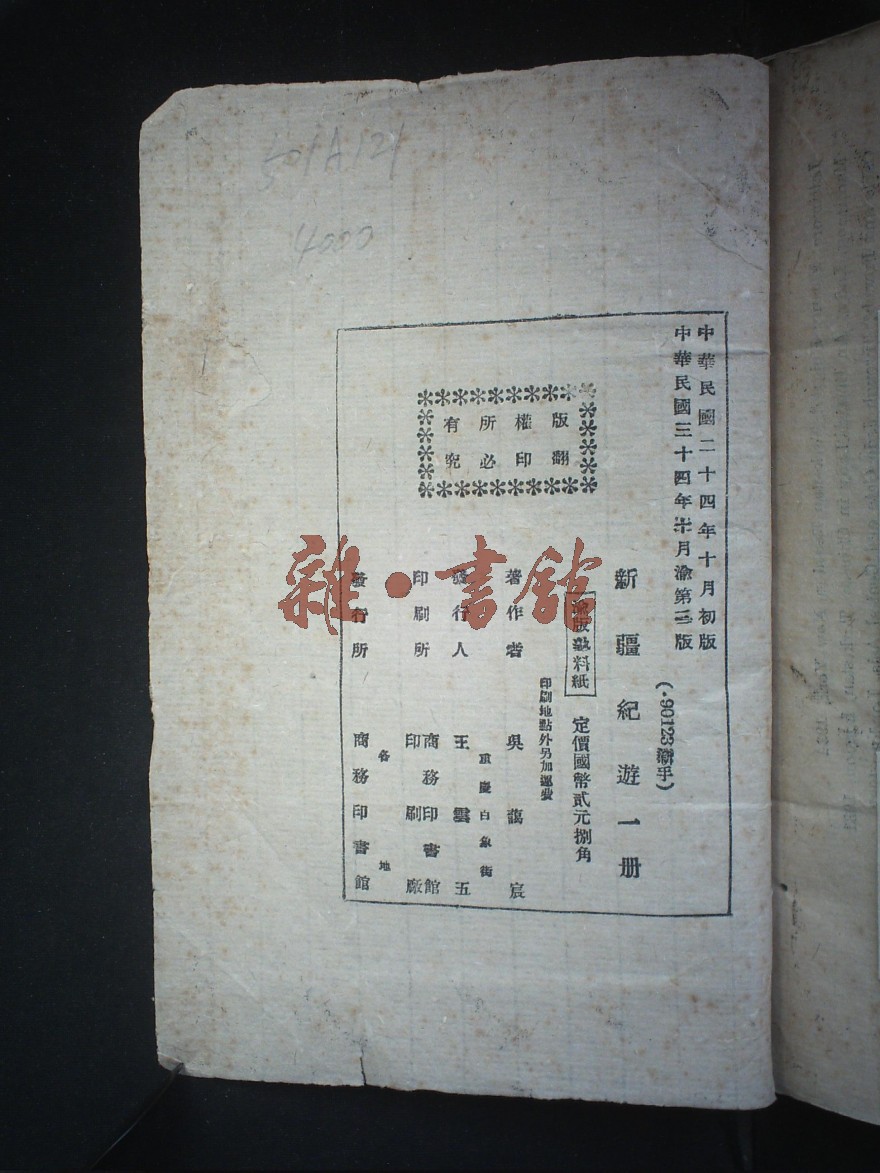 501A121
4000
中華民國二十四年十月初版
中華民國三十四年十月渝第三版
(·90123渝手)
新疆紀遊一册
渝版熟料紙
定價國幣貳元捌角
印刷地點外另加運費
版權所有
翻印必究
著作者 吳藹宸
重慶白象街
發行人 王雲五
印刷所 商務印書館印刷廠
各地
發行所 商務印書館
雜·書館